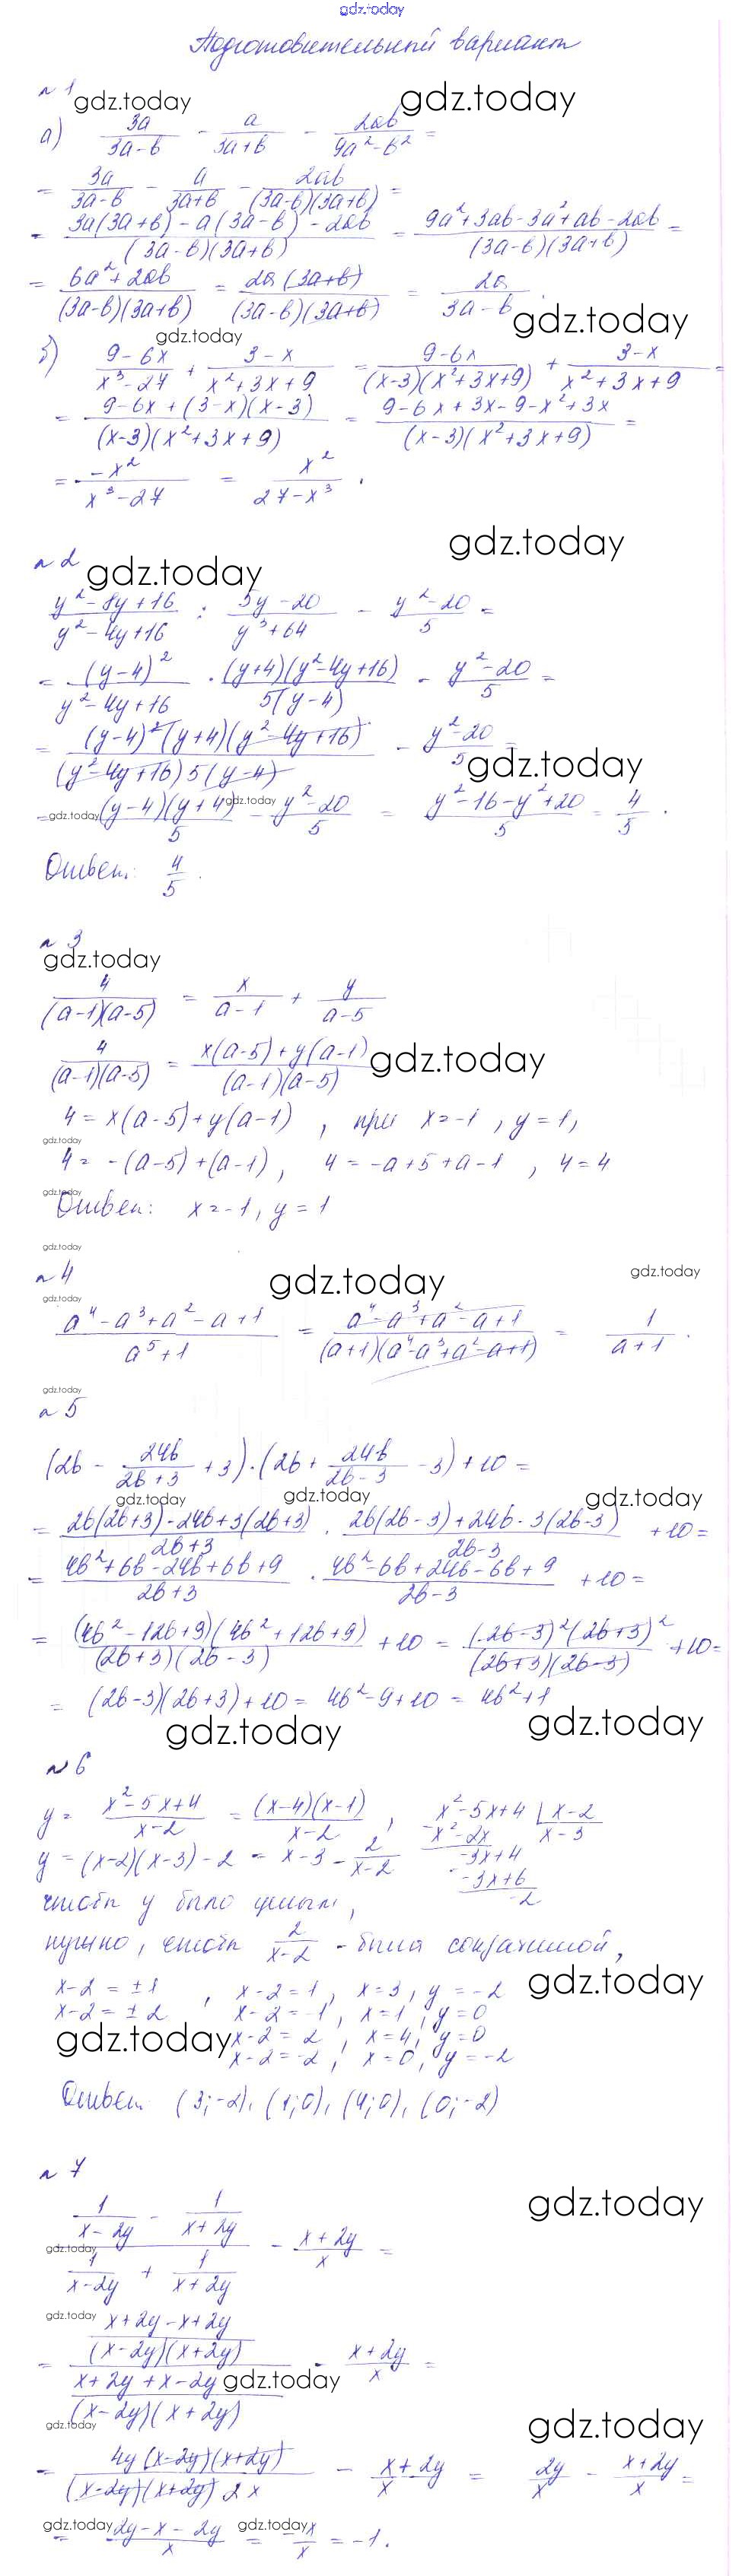 gdz.today
Подготовительный вариант
№ 1
gdz.today gdz.today
а) 3a/(3a-b) - a/(3a+b) - 2ab/(9a²-b²) =
= 3a/(3a-b) - a/(3a+b) - 2ab/((3a-b)(3a+b)) =
= (3a(3a+b) - a(3a-b) - 2ab)/((3a-b)(3a+b)) = (9a²+3ab-3a²+ab-2ab)/((3a-b)(3a+b)) =
= (6a²+2ab)/((3a-b)(3a+b)) = 2a(3a+b)/((3a-b)(3a+b)) = 2a/(3a-b).
gdz.today gdz.today
б) (9-6x)/(x³-27) + (3-x)/(x²+3x+9) = (9-6x)/((x-3)(x²+3x+9)) + (3-x)/(x²+3x+9) =
= (9-6x+(3-x)(x-3))/((x-3)(x²+3x+9)) = (9-6x+3x-9-x²+3x)/((x-3)(x²+3x+9)) =
= -x²/(x³-27) = x²/(27-x³).
gdz.today
№ 2
gdz.today
(y²-8y+16)/(y²-4y+16) : (5y-20)/(y³+64) - (y²-20)/5 =
= (y-4)²/(y²-4y+16) · (y+4)(y²-4y+16)/(5(y-4)) - (y²-20)/5 =
= (y-4)²(y+4)(y²-4y+16)/((y²-4y+16)5(y-4)) - (y²-20)/5 =
gdz.today
= gdz.today (y-4)(y+4)/5 gdz.today - (y²-20)/5 = (y²-16-y²+20)/5 = 4/5.
Ответ: 4/5.
№ 3
gdz.today
4/((a-1)(a-5)) = x/(a-1) + y/(a-5)
4/((a-1)(a-5)) = (x(a-5)+y(a-1))/((a-1)(a-5)) gdz.today
4 = x(a-5)+y(a-1), при x=-1, y=1,
gdz.today
4 = -(a-5)+(a-1), 4 = -a+5+a-1, 4=4
gdz.today
Ответ: x=-1, y=1
gdz.today
№ 4 gdz.today gdz.today
gdz.today
(a⁴-a³+a²-a+1)/(a⁵+1) = (a⁴-a³+a²-a+1)/((a+1)(a⁴-a³+a²-a+1)) = 1/(a+1).
gdz.today
№ 5
(2b - 24b/(2b+3) + 3)·(2b + 24b/(2b-3) - 3) + 10 =
gdz.today gdz.today gdz.today
= (2b(2b+3)-24b+3(2b+3))/(2b+3) · (2b(2b-3)+24b-3(2b-3))/(2b-3) + 10 =
= (4b²+6b-24b+6b+9)/(2b+3) · (4b²-6b+24b-6b+9)/(2b-3) + 10 =
= (4b²-12b+9)(4b²+12b+9)/((2b+3)(2b-3)) + 10 = (2b-3)²(2b+3)²/((2b+3)(2b-3)) + 10 =
= (2b-3)(2b+3)+10 = 4b²-9+10 = 4b²+1
gdz.today gdz.today
№ 6
y = (x²-5x+4)/(x-2) = (x-4)(x-1)/(x-2), x²-5x+4 | x-2
x²-2x x-3
y = (x-2)(x-3)-2 = x-3 - 2/(x-2) -3x+4
-3x+6
-2
чтобы y было целым,
нужно, чтобы 2/(x-2) - была сократимой,
x-2 = ±1, x-2=1, x=3, y=-2 gdz.today
x-2 = ±2 x-2=-1, x=1, y=0
gdz.today x-2=2, x=4, y=0
x-2=-2, x=0, y=-2
Ответ: (3;-2), (1;0), (4;0), (0;-2)
№ 7
gdz.today
(1/(x-2y) - 1/(x+2y))/(1/(x-2y) + 1/(x+2y)) - (x+2y)/x =
gdz.today
gdz.today
= ((x+2y-x+2y)/((x-2y)(x+2y)))/((x+2y+x-2y)/((x-2y)(x+2y))) - (x+2y)/x =
gdz.today
gdz.today gdz.today
= 4y(x-2y)(x+2y)/((x-2y)(x+2y)2x) - (x+2y)/x = 2y/x - (x+2y)/x =
gdz.today = (2y-x-2y)/x gdz.today = -x/x = -1.